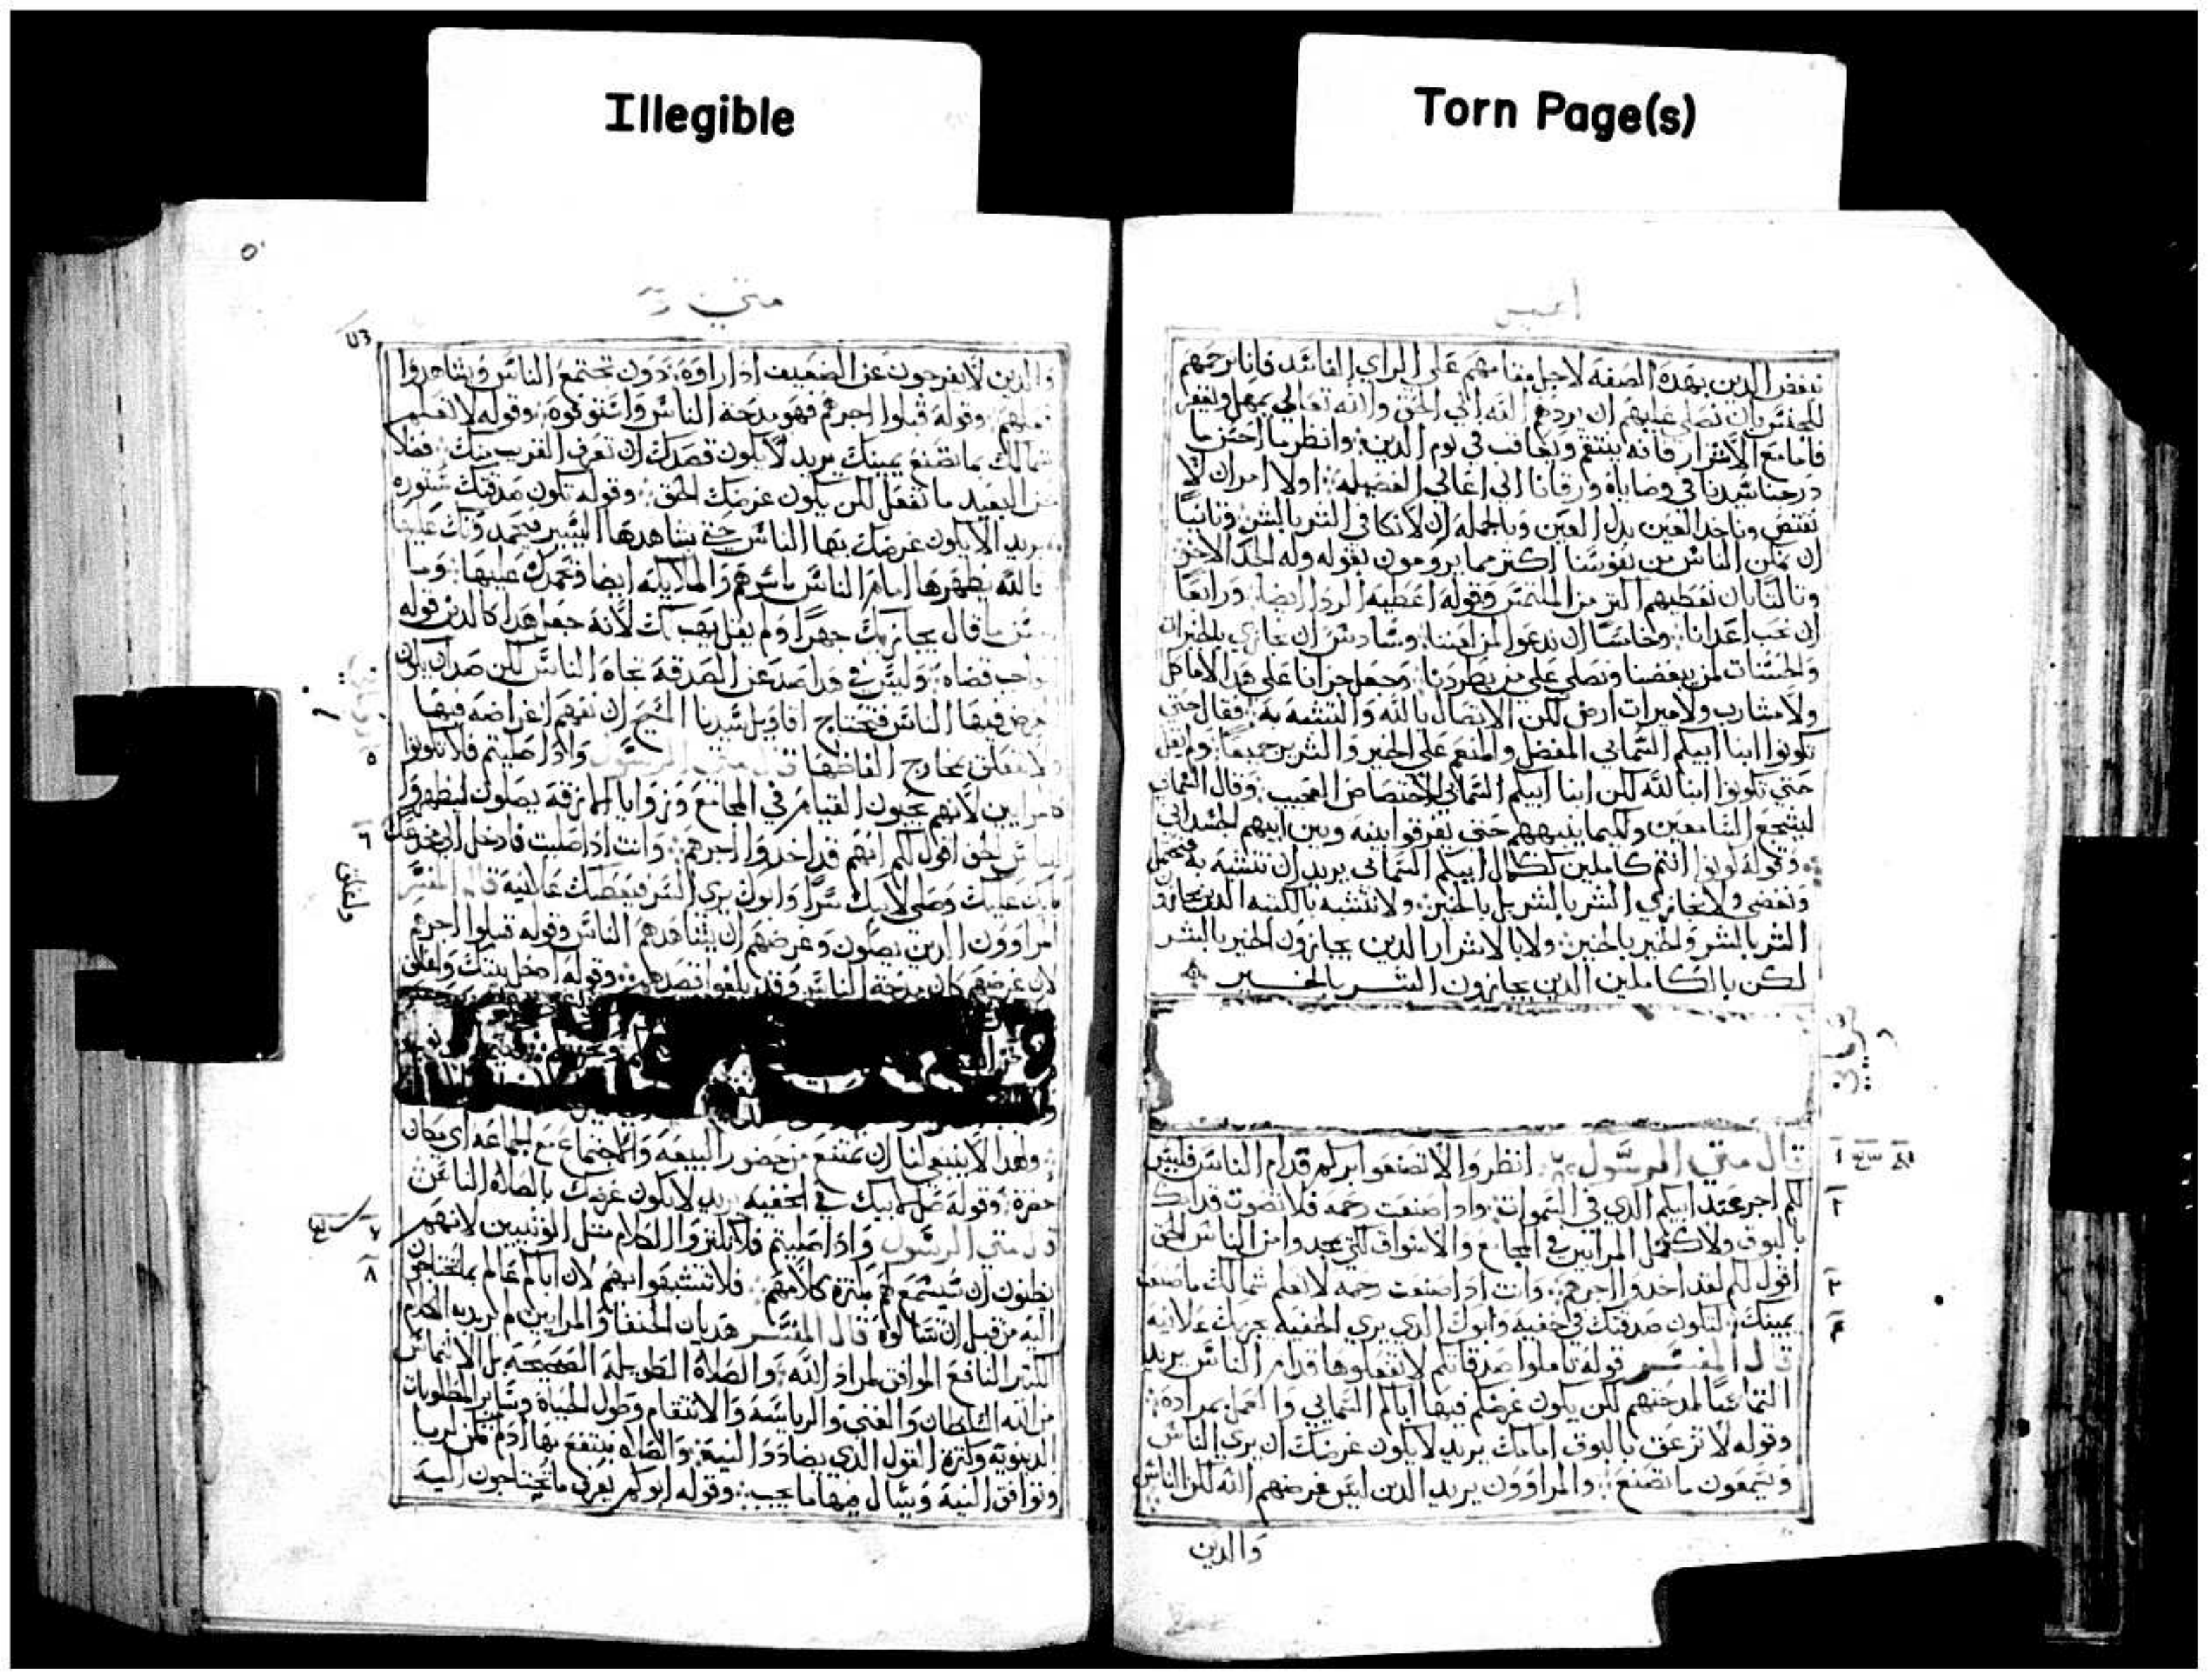 Illegible
Torn Page(s)
نبغض الدين بهده الصفه لاجل مقامهم على الراي الفاسد فاما نرحمهم
للجنس بان نصلي عليهم ان يردهم الله الي الحق والله تعالي يمهل ويغفر
فاما مع الاشرار فانه ينتقم ويعاقب في يوم الدين وانظر ما احسن ما
درجنا سيدنا في وصاياه ورقانا الي اعالي الفضيله اولا امر ان لا
نقتص وناخد العين بدل العين وبالجمله ان لا نكافي الشر بالشر وثانيا
ان نمكن الناس من نفوسنا اكثر مما يرومون بقوله وله الخد الاخر
وثالثا بان نعطيهم اكثر من الملتمس وقوله اعطيه الردا ايضا ورابعا
ان نحب اعدانا وخامسا ان ندعوا لمن لعننا وسادس ان نجازي بالخيرات
والحسنات لمن يبغضنا ونصلي علي من يطردنا وجعل جزانا علي هدا لا ماكل
ولا مشارب ولا ميرات ارض لكن الاتصال بالله والتشبه به فقال حتي
تكونوا ابنا ابيكم السماني المفضل والمنعم علي الخير والشرير جميعا ولم يقل
حتي تكونوا ابنا الله لكن ابنا ابيكم السماني للاختصاص العجيب وقال السماني
ليشجع السامعين وكيما ينبههم حتي يفرقوا بينه وبين ابيهم الجسداني
وقوله كونوا انتم كاملين ككمال ابيكم السماني يريد ان نتشبه به فنحتمل
ونغضي ولا نجازي الشر بالشر بل بالخير ولا نتشبه بالكتبه الدين يجازو
الشر بالشر والخير بالخير ولا بالاشرار الدين يجازون الخير بالشر
لكن بالكاملين الدين يجازون الشر بالخير
قال متي الرسول انظروا الا تصنعوا بركم قدام الناس فليس
لكم اجر عند ابيكم الدي في السموات وادا صنعت رحمه فلا تصوت قدامك
بالبوق ولا كعمل المرايين في المجامع والاسواق لكي يمجدوا من الناس الحق
اقول لكم لقد اخدوا اجرهم وانت ادا صنعت رحمه لا تعلم شمالك ما صنعت
يمينك لتكون صدقتك في خفيه وابوك الدي يري الخفيه يجزيك علانيه
قال المفسر قوله تاملوا صدقاتكم لا تفعلوها قدام الناس يريد
التماسا لمدحتهم لكن يكون غرضكم فيها اباكم السماني والعمل بمراده
وقوله لا تزعق بالبوق امامك يريد لا يكون غرضك ان يري الناس
ويسمعون ما تصنع والمراوون يريد الدين ليس غرضهم الله لكن الناس
والدين
متي
والدين لا يفرجون عن الضعيف ادا راوه دون تجتمع الناس ويشاهدوا
فعلهم وقوله قبلوا اجرهم فهو مدحة الناس واستوفوه وقوله لا تعلم
شمالك بما تصنع يمينك يريد لا يكون قصدك ان تعرف القريب منك فضلا
عن البعيد ما تفعل لكن يكون غرضك الحق وقوله تكون صدقتك مستوره
يريد الا يكون غرضك بها الناس حتي يشاهدها اليسير فيحمدونك عليها
فالله يظهرها امام الناس باسرهم والملايكه ايضا فتحمدك عليها وما
احسن ما قال يجازيك جهرا ولم يقل يهب لك لانه جعل هدا كالدين قوله
واجب قضاه وليس في هدا صد عن الصدقه تجاه الناس لكن صد ان يكون
الغرض فيها الناس فنحتاج اقاويل سيدنا المسيح ان نفهم اغراضه فيها
ولا نتعلق بمخارج الفاظها قال متي الرسول وادا صليتم فلا تكونوا
كالمرايين لانهم يحبون القيام في المجامع وزوايا الازقه يصلون ليظهروا
للناس الحق اقول لكم انهم قد اخدوا اجرهم وانت ادا صليت فادخل الي مخدعك
بابك عليك وصلي لابيك سرا وابوك يري السر فيعطيك علانيه قال المفسر
المراوون الدين يصلون وغرضهم ان يشاهدهم الناس وقوله قبلوا اجرهم
لان غرضهم كان مدحة الناس وقد بلغوا قصدهم وقوله ادخل بيتك واغلق
وهدا لا ينبغي لنا ان نمتنع من حضور البيعه والاجتماع مع الجماعه اي مكان
حضره وقوله صل لابيك في الخفيه يريد لا يكون غرضك بالصلاه الناس
قال متي الرسول وادا صليتم فلا تكثروا الكلام مثل الوثنيين لانهم
يظنون ان يستمع لهم بكثرة كلامهم فلا تتشبهوا بهم لان اباكم عالم بما تحتاجون
اليه من قبل ان تسالوه قال المفسر هديان الحنفا والمرايين لم يريد به الكلام
الكثير النافع الموافق لمراد الله والصلاة الطويله الصحيحه بل الالتماس
من الله السلطان والغني والرياسة والانتقام وطول الحياة وساير المطلوبات
الدنيويه وكثرة القول الدي يضادد النية والصلاه ينتفع بها ادا لم تكن لريا
وتوافق النية ويسال فيها ما يجب وقوله ابوكم يعرف ما تحتاجون اليه